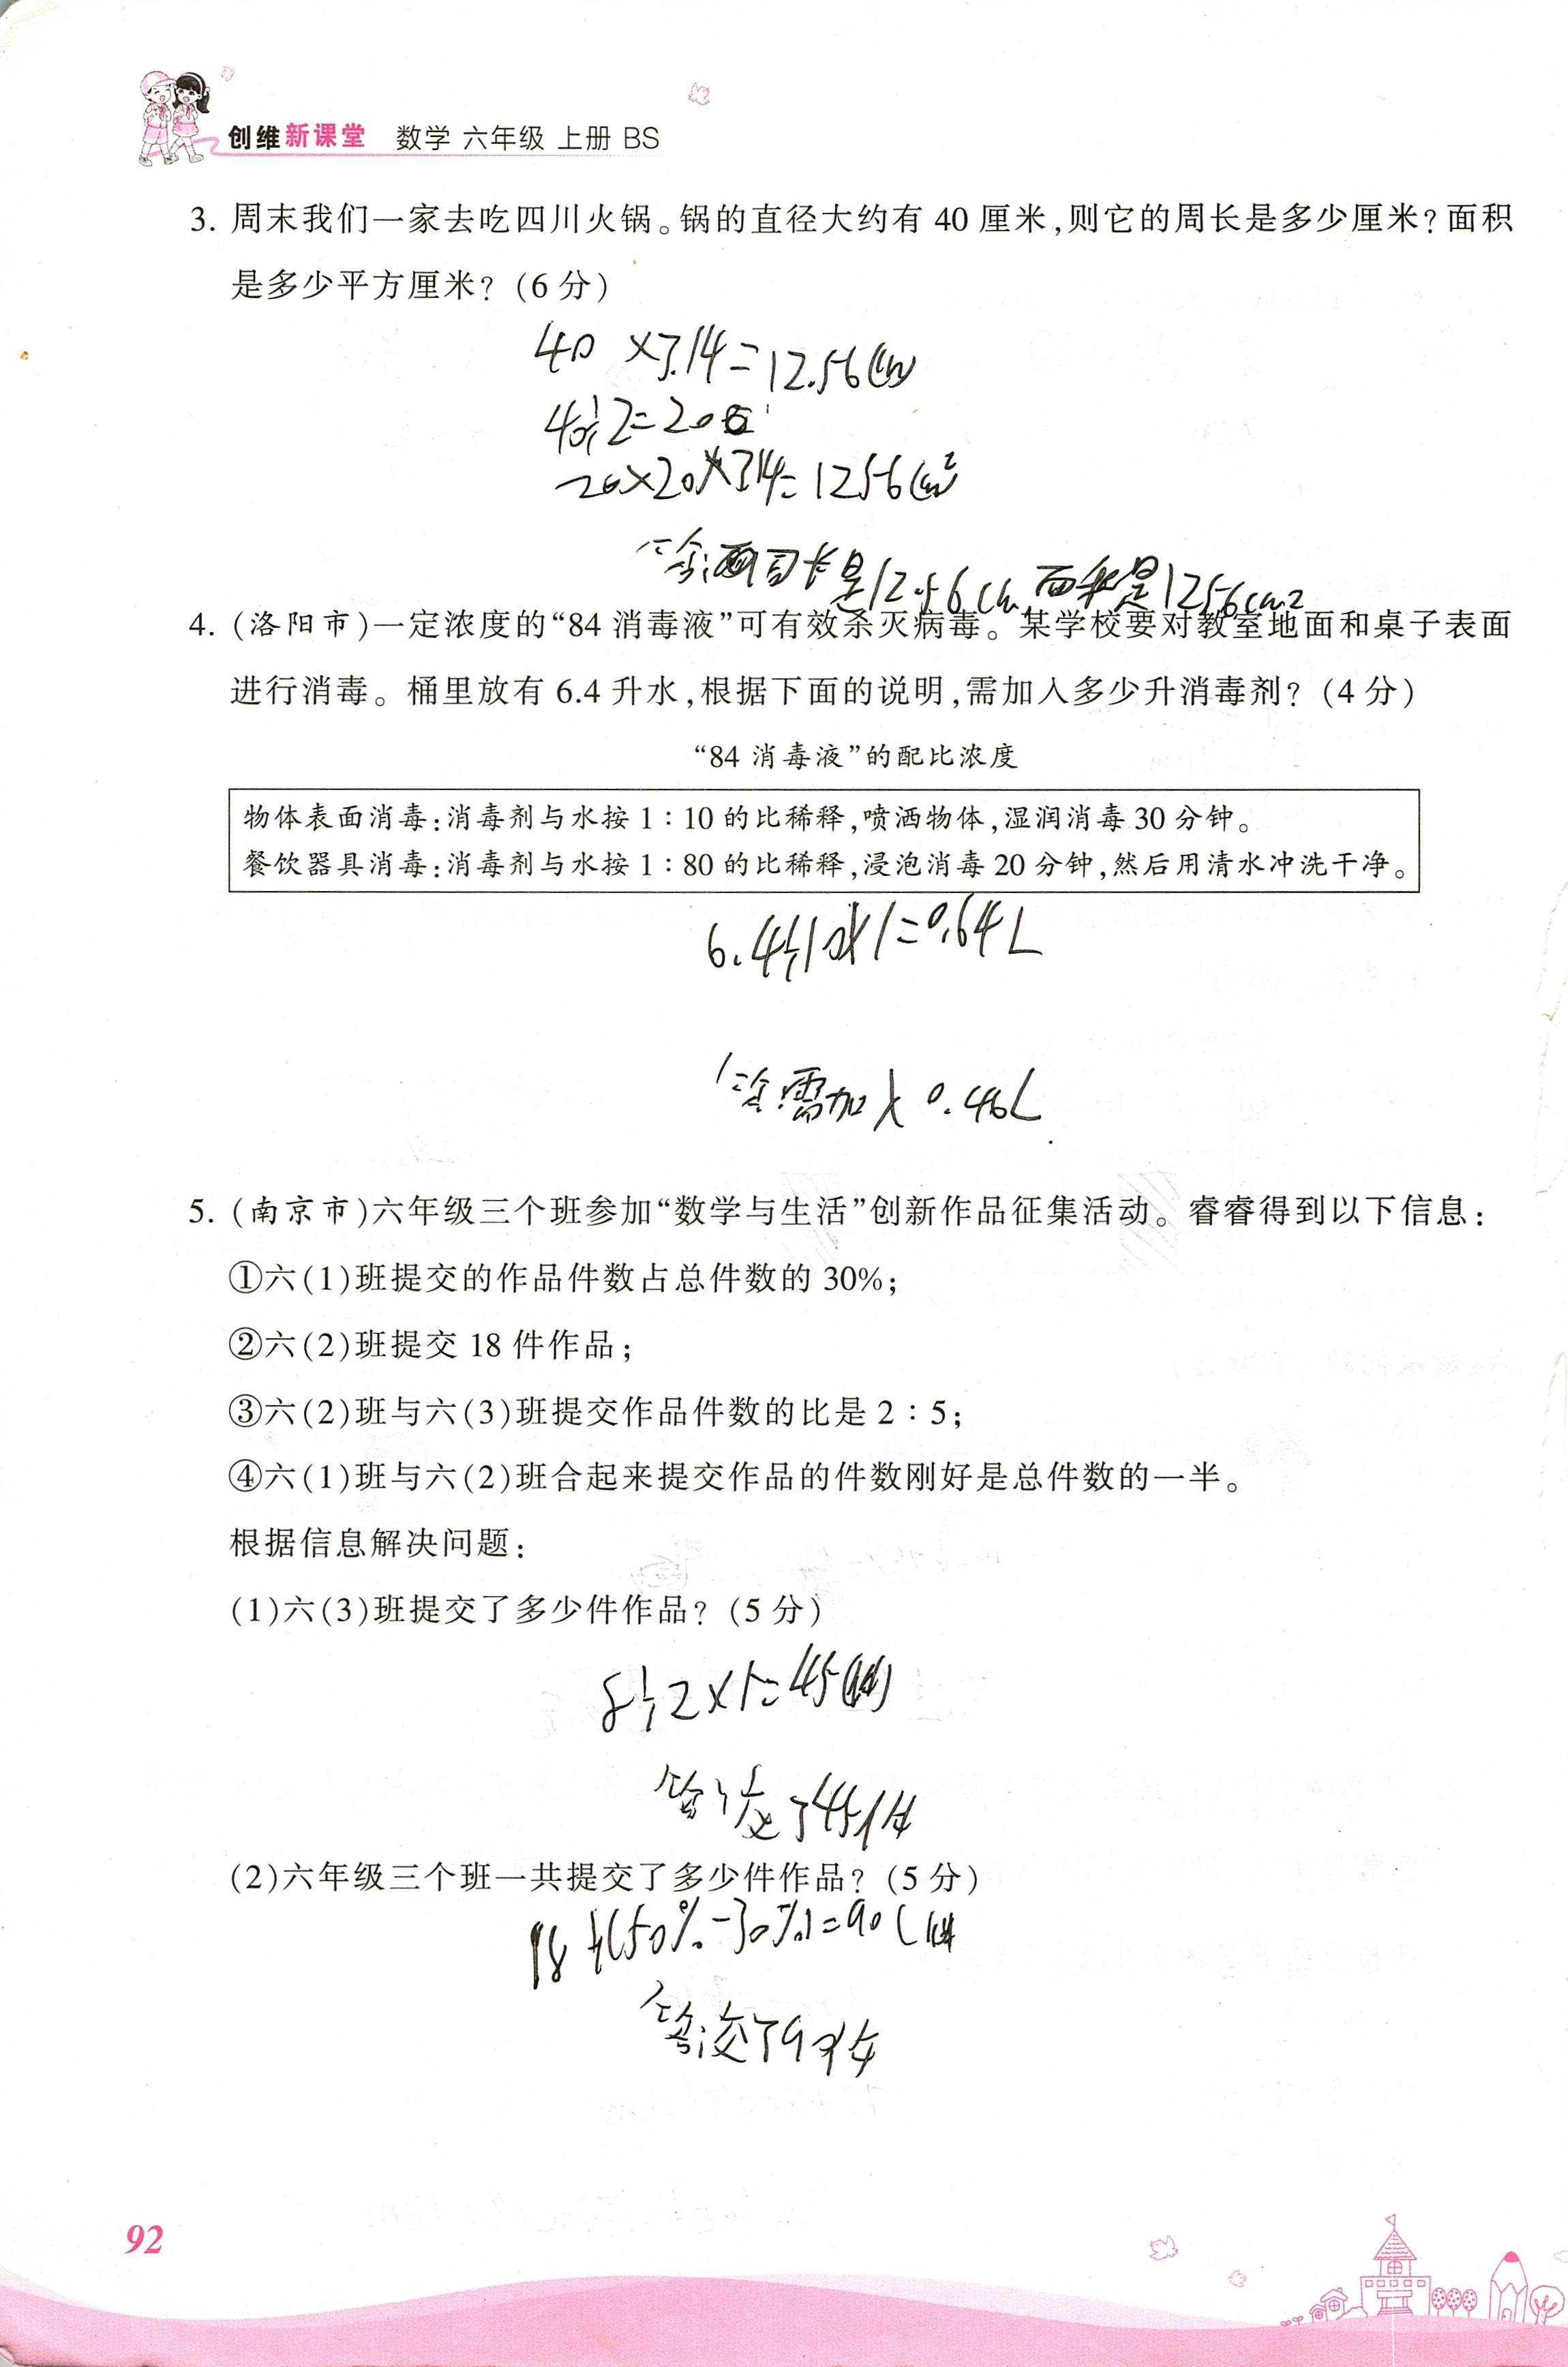 创维新课堂 数学 六年级 上册 BS
3. 周末我们一家去吃四川火锅。锅的直径大约有 40 厘米,则它的周长是多少厘米?面积
是多少平方厘米?(6 分)
40 ×3.14=12.56(cm)
40÷2=20
20×20×3.14=1256(cm²
答:周长是12.56cm 面积是1256cm2
4. (洛阳市)一定浓度的“84 消毒液”可有效杀灭病毒。某学校要对教室地面和桌子表面
进行消毒。桶里放有 6.4 升水,根据下面的说明,需加入多少升消毒剂?(4 分)
“84 消毒液”的配比浓度
物体表面消毒:消毒剂与水按 1∶10 的比稀释,喷洒物体,湿润消毒 30 分钟。
餐饮器具消毒:消毒剂与水按 1∶80 的比稀释,浸泡消毒 20 分钟,然后用清水冲洗干净。
6.4÷10×1=0.64L
答需加入0.46L
5. (南京市)六年级三个班参加“数学与生活”创新作品征集活动。睿睿得到以下信息:
①六(1)班提交的作品件数占总件数的 30%;
②六(2)班提交 18 件作品;
③六(2)班与六(3)班提交作品件数的比是 2∶5;
④六(1)班与六(2)班合起来提交作品的件数刚好是总件数的一半。
根据信息解决问题:
(1)六(3)班提交了多少件作品?(5 分)
8÷2×5=45(件)
答:交了45件
(2)六年级三个班一共提交了多少件作品?(5 分)
18÷(50%-30%)=90(件
答:交了90件
92